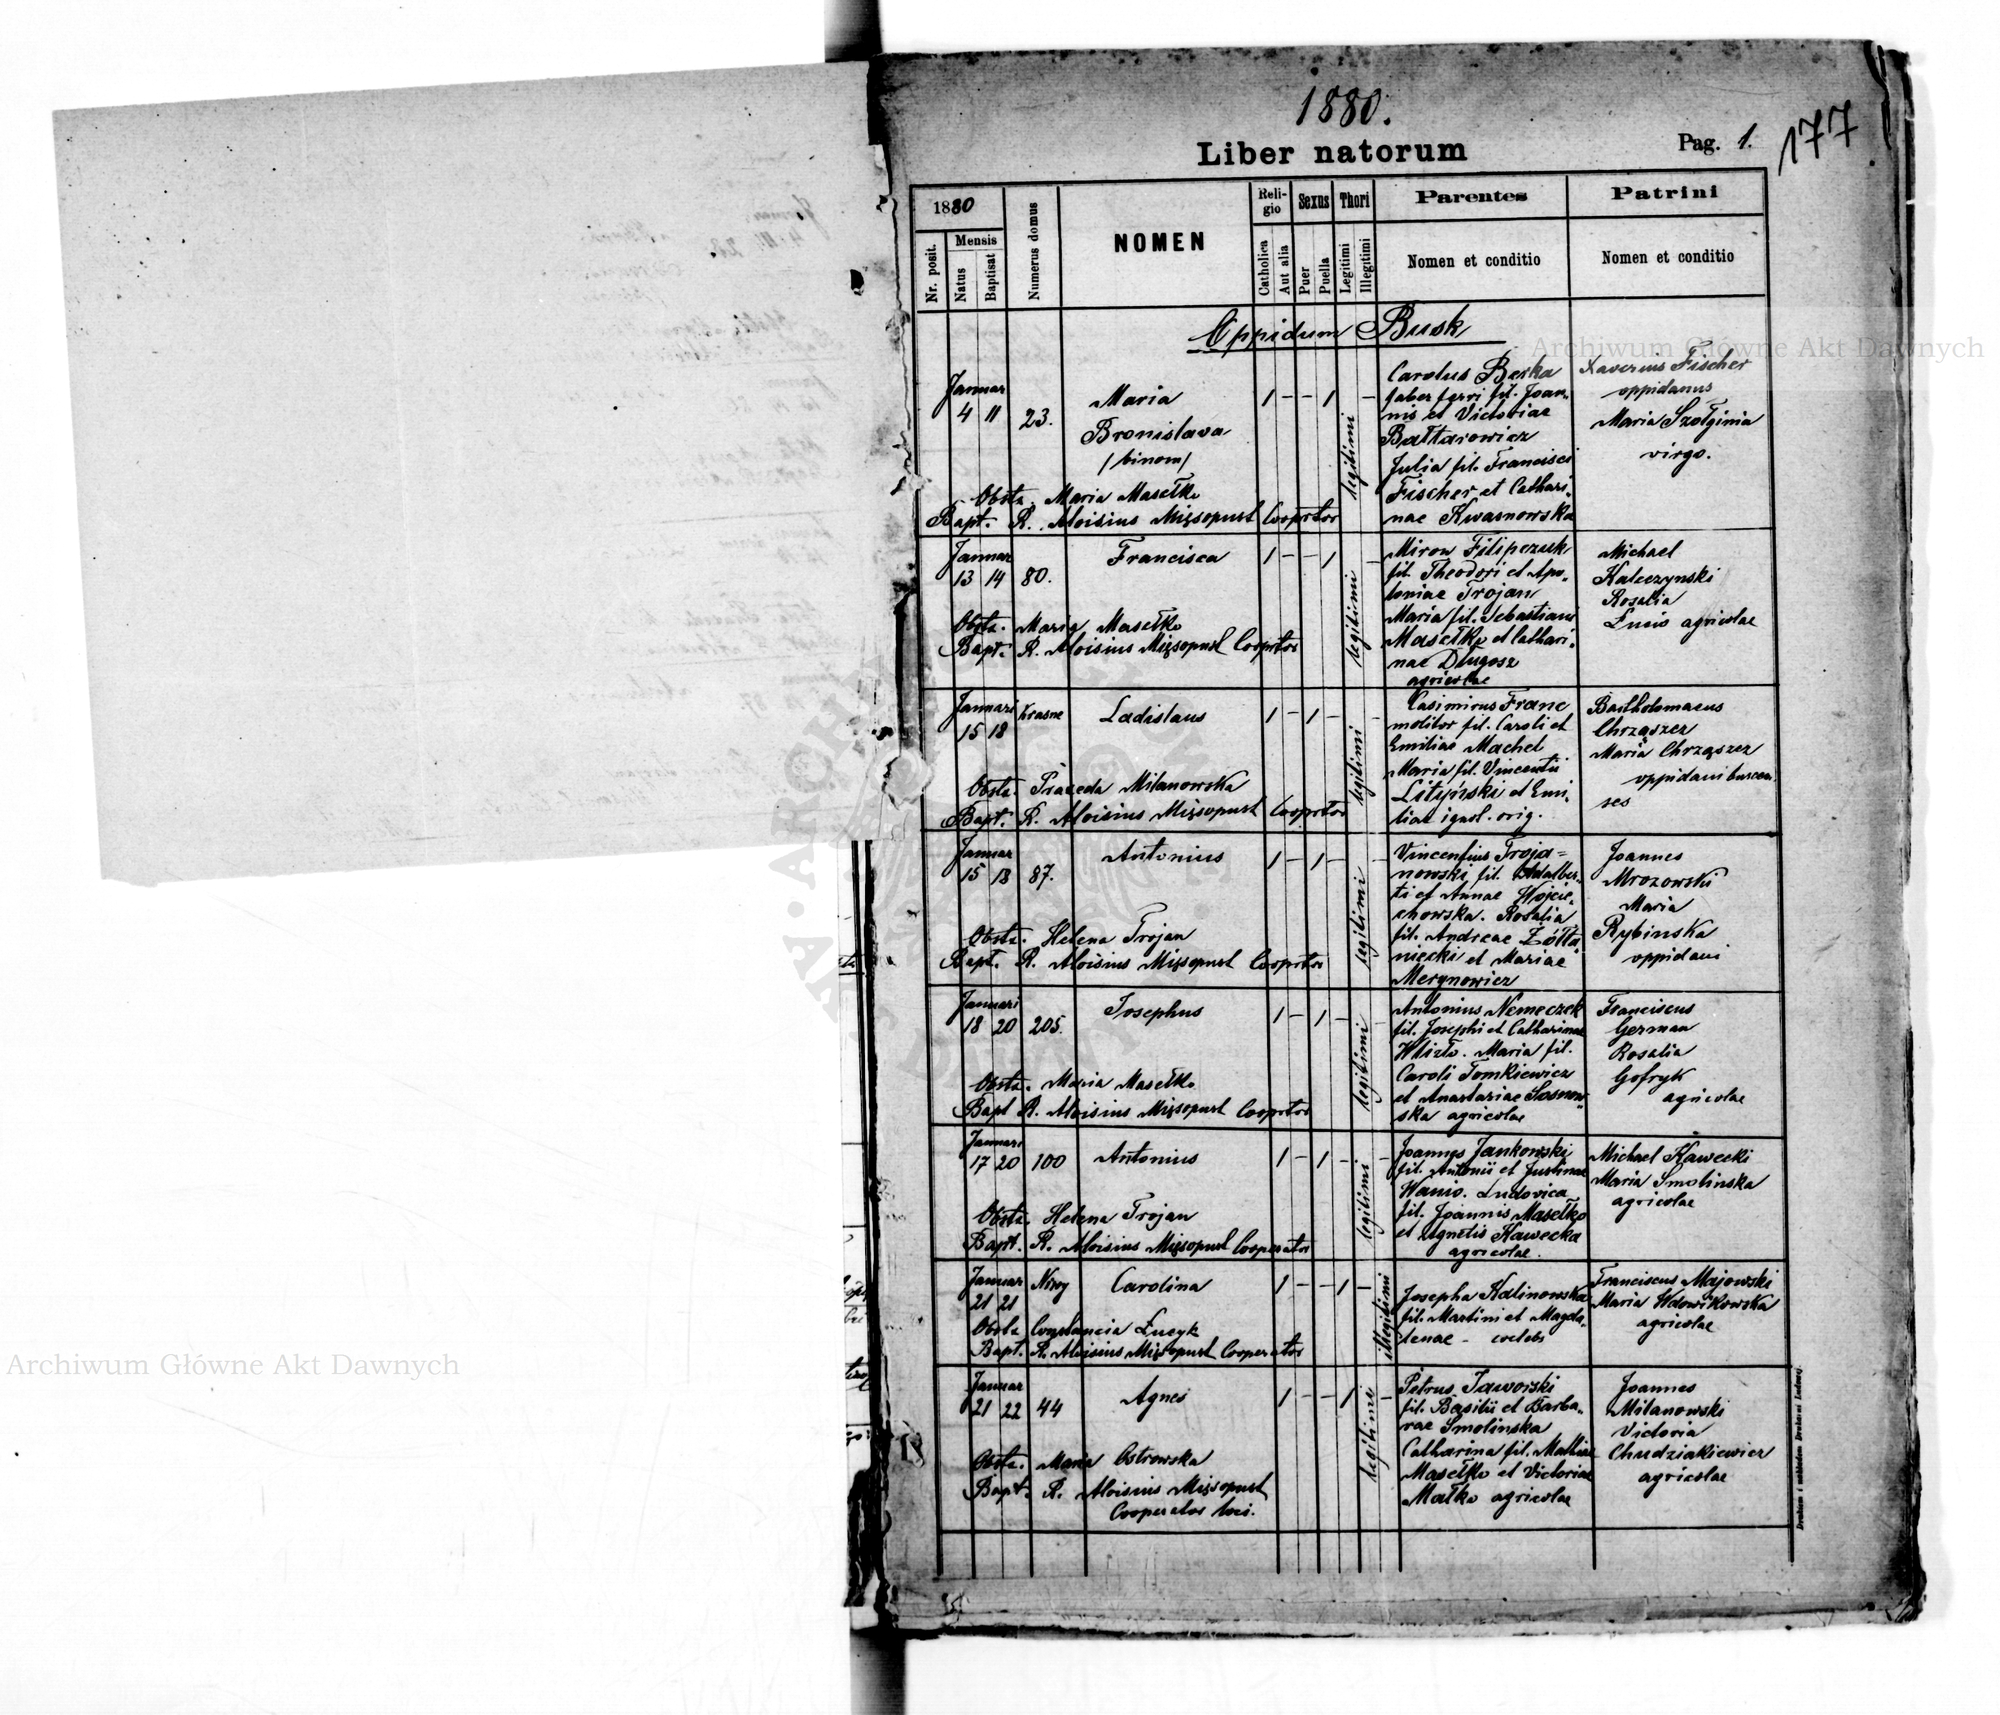 1880.
Liber natorum
Pag. 1.
177
1880
Nr. posit.
Mensis
Natus
Baptisat
Numerus domus
NOMEN
Religio
Catholica
Aut alia
Sexus
Puer
Puella
Thori
Legitimi
Illegitimi
Parentes
Nomen et conditio
Patrini
Nomen et conditio
Oppidum Busk
Archiwum Główne Akt Dawnych
Januar
4 11 23.
Maria
Bronislava
/binom/
1 – – 1 –
legitimi
Obstz. Maria Masełko
Bapt. R. Aloisius Mięsopust Cooprtor
Carolus Berka
faber ferri fil. Joan„
nis et Victoriae
Bałtarowicz
Julia fil. Francisci
Fischer et Cathari„
nae Kwasnowska
Xaverius Fischer
oppidanus
Maria Szołginia
virgo.
Januar
13 14 80.
Francisca
1 – – 1 –
legitimi
Obstz. Maria Masełko
Bapt. R. Aloisius Mięsopust Cooprtor
Miron Filipczuk
fil. Theodori et Apo„
loniae Trojan
Maria fil. Sebastiani
Masełko et Cathari„
nae Długosz
agricolae
Michael
Kalczynski
Rosalia
agricolae
Januari
15 18 Krasne
Ladislaus
1 – 1 – –
legitimi
Obstz. Praxeda Milanowska
Bapt. R. Aloisius Mięsopust Cooprtor
Casimirus Franc
molitor fil. Caroli et
Emiliae Machel
Maria fil. Vincentii
Lityński et Emi„
liae orig.
Bartholomaeus
Chrząszcz
Maria Chrząszcz
oppidani buscen„
ses
Januar
15 18 87.
Antonius
1 – 1 – –
legitimi
Obstz. Helena Trojan
Bapt. R. Aloisius Mięsopust Cooprtor
Vincentius Troja=
nowski fil. Adalber„
ti et Annae Wojcie„
chowska. Rosalia
fil. Andreae Żółta„
niecki et Mariae
Merynowicz
Joannes
Mrozowski
Maria
Rybinska
oppidani
Januari
18 20 205.
Josephus
1 – 1 – –
legitimi
Obstz. Maria Masełko
Bapt R. Aloisius Mięsopust Cooprtor
Antonius Nemeczek
fil. Josephi et Catharinae
Wlizło. Maria fil.
Caroli Tomkiewicz
et Anastasiae Sosnow„
ska agricolae
Franciscus
German
Rosalia
Gofryk
agricolae
Januari
17 20 100
Antonius
1 – 1 – –
legitimi
Obstz. Helena Trojan
Bapt. R. Aloisius Mięsopust Cooperator
Joannes Jankowski
fil. Antonii et Justinae
Wanio. Ludovica
fil. Joannis Masełko
et Agnetis Kawecka
agricolae.
Michael Kawecki
Maria Smolinska
agricolae
Januar
21 21
Carolina
1 – – 1 –
illegitimi
Obstz Constancia Łucyk
Bapt. R. Aloisius Mięsopust Cooperator
Josepha Kalinowska
fil. Martini et Magda„
lenae – coelebs
Franciscus Majowski
Maria Wdowikowska
agricolae
Januar
21 22 44
Agnes
1 – – 1 –
legitimi
Obstz. Maria Ostrowska
Bapt. R. Aloisius Mięsopust
Cooperator loci.
Petrus Jaworski
fil. Basilii et Barba„
rae Smolinska
Catharina fil. Mathiae
Masełko et Victoriae
Małko agricolae
Joannes
Milanowski
Victoria
Chudziakiewicz
agricolae
Archiwum Główne Akt Dawnych